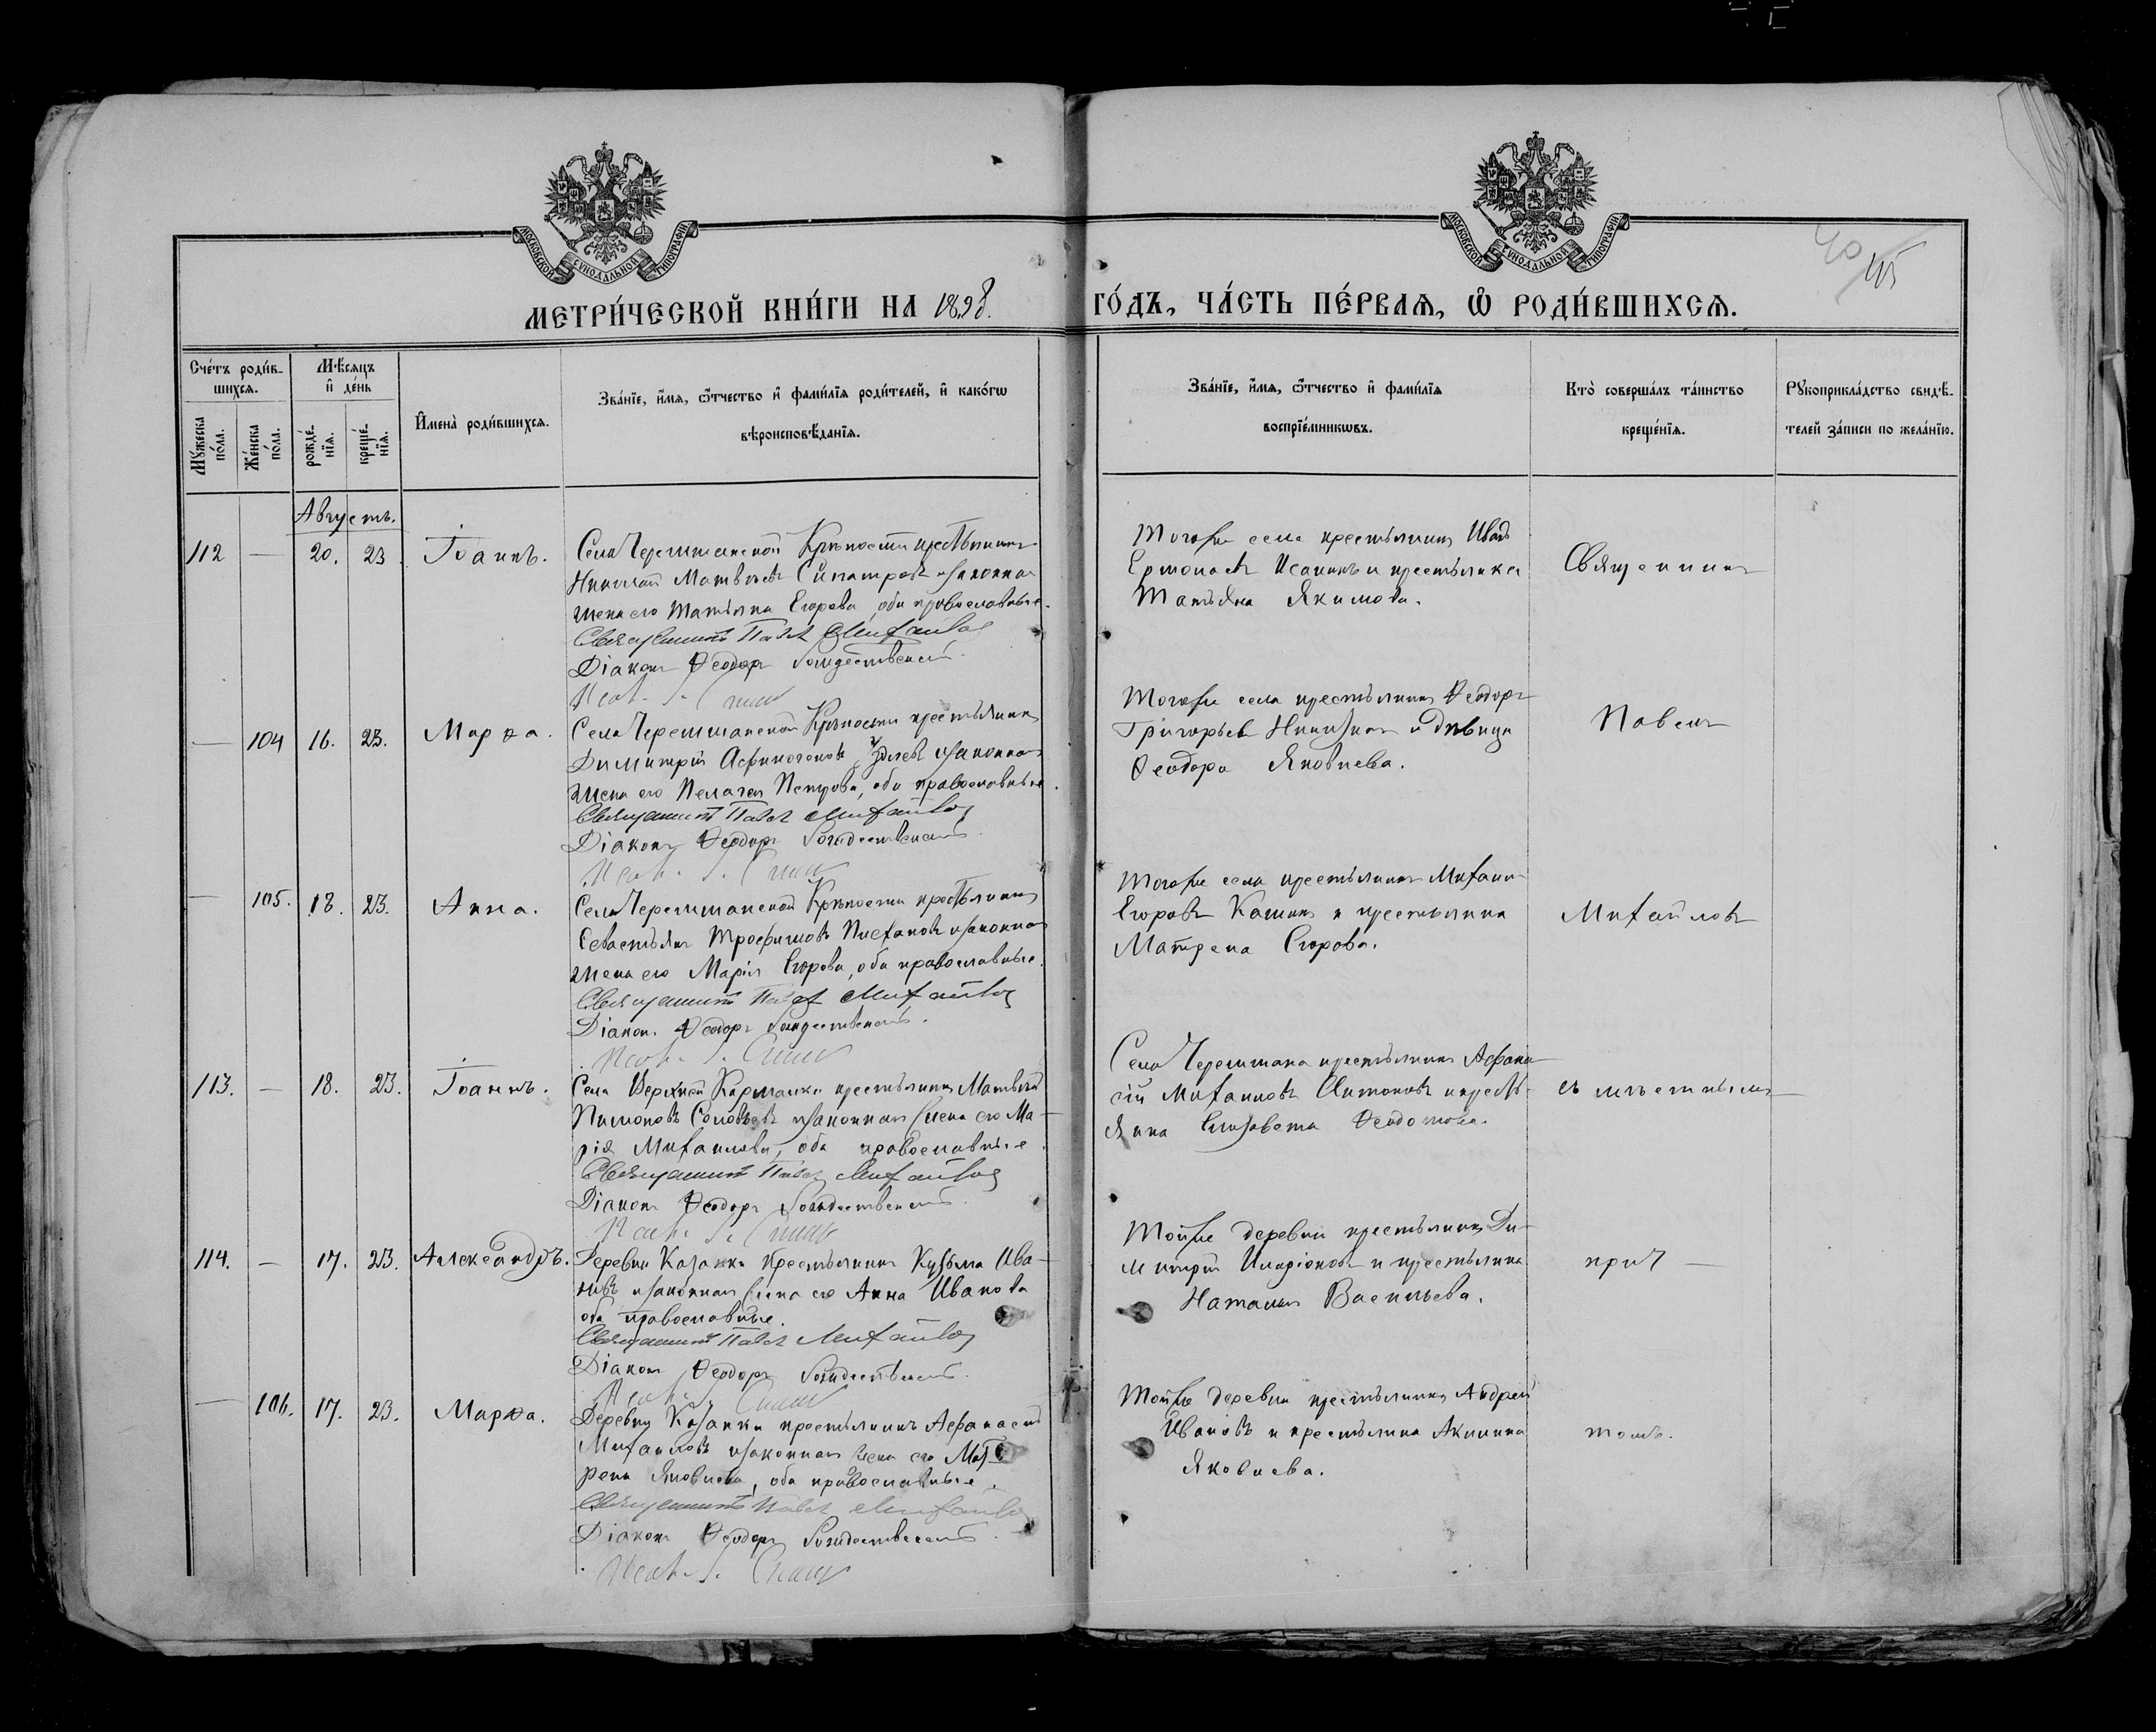 МОСКОВСКОЙ СѴНОДАЛЬНОЙ ТИПОГРАФІИ
МОСКОВСКОЙ СѴНОДАЛЬНОЙ ТИПОГРАФІИ
МЕТРИ́ЧЕСКОЙ КНИ́ГИ НА 1898. ГО́ДЪ, ЧА́СТЬ ПЕ́РВАѦ, Ѽ РОДИ́ВШИХСѦ.
Сче́тъ роди́в-
шихсѧ.
Мѣ́сяцъ
и҆ де́нь
Мꙋ́жеска по́ла.
Же́нска по́ла.
рожде́-
нїѧ.
креще́-
нїѧ.
И҆мена̀ роди́вшихсѧ.
Зва́нїе, и҆́мѧ, ѻ҆́тчество и҆ фами́лїѧ роди́телей, и҆ како́гѡ
вѣроисповѣ́данїѧ.
Зва́нїе, и҆́мѧ, ѻ҆́тчество и҆ фами́лїѧ
воспрїе́мникѡвъ.
Кто̀ соверша́лъ та́инство
креще́нїѧ.
Рꙋкоприкла́дство свидѣ́-
телей за́писи по жела́нїю.
Августъ.
112 — 20. 23. Іоаннъ.
Села Черемшанской Крѣпости крестьянинъ
Николай Матвѣевъ и законная
жена его Татьяна Егорова, оба православные.
Священникъ Павелъ Михайловъ
Діаконъ Ѳеодоръ Рождественскій.
Тогоже села крестьянинъ Иванъ
и крестьянка
Татьяна Якимова.
Священникъ
— 104 16. 23. Марѳа.
Села Черемшанской Крѣпости крестьянинъ
Димитрій и законная
жена его Пелагея Петрова, оба православные.
Священникъ Павелъ Михайловъ
Діаконъ Ѳеодоръ Рождественскій.
Тогоже села крестьянинъ Ѳеодоръ
Григорьевъ и дѣвица
Ѳеодора Яковлева.
Павелъ
— 105. 18. 23. Анна.
Села Черемшанской Крѣпости крестьянинъ
Севастьянъ Трофимовъ и законная
жена его Марія Егорова, оба православные.
Священникъ Павелъ Михайловъ
Діаконъ Ѳеодоръ Рождественскій.
Тогоже села крестьянинъ Михаилъ
Егоровъ Кашинъ и крестьянка
Матрена Егорова.
Михайловъ
113. — 18. 23. Іоаннъ.
Села Верхней Кармалки крестьянинъ Матвѣй
Пимоновъ Соловьевъ и законная жена его Ма-
рія Михаилова, оба православные.
Священникъ Павелъ Михайловъ
Діаконъ Ѳеодоръ Рождественскій.
Села Черемшана крестьянинъ Афана-
сій Михаиловъ Антоновъ и кресть-
янка Елизавета Ѳеодотова.
съ мѣстнымъ
114. — 17. 23. Александръ.
Деревни Казанки крестьянинъ Кузьма Ива-
новъ и законная жена его Анна Иванова
оба православные.
Священникъ Павелъ Михайловъ
Діаконъ Ѳеодоръ Рождественскій.
Тойже деревни крестьянинъ Ди-
митрій Иларіоновъ и крестьянка
Наталья Васильева.
прич —
— 106. 17. 23. Марѳа.
Деревни Казанки крестьянинъ Афанасій
Михаиловъ и законная жена его Мат-
рена Яковлева, оба православные.
Священникъ Павелъ Михайловъ
Діаконъ Ѳеодоръ Рождественскій.
Тойже деревни крестьянинъ Андрей
Ивановъ и крестьянка Акилина
Яковлева.
томъ.